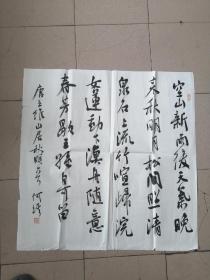 空山新雨後天氣晚
来秋明月松間照清
泉石上流竹喧歸浣
女蓮動漁舟随意
春芳歇王孫自可留
唐王維山居秋暝